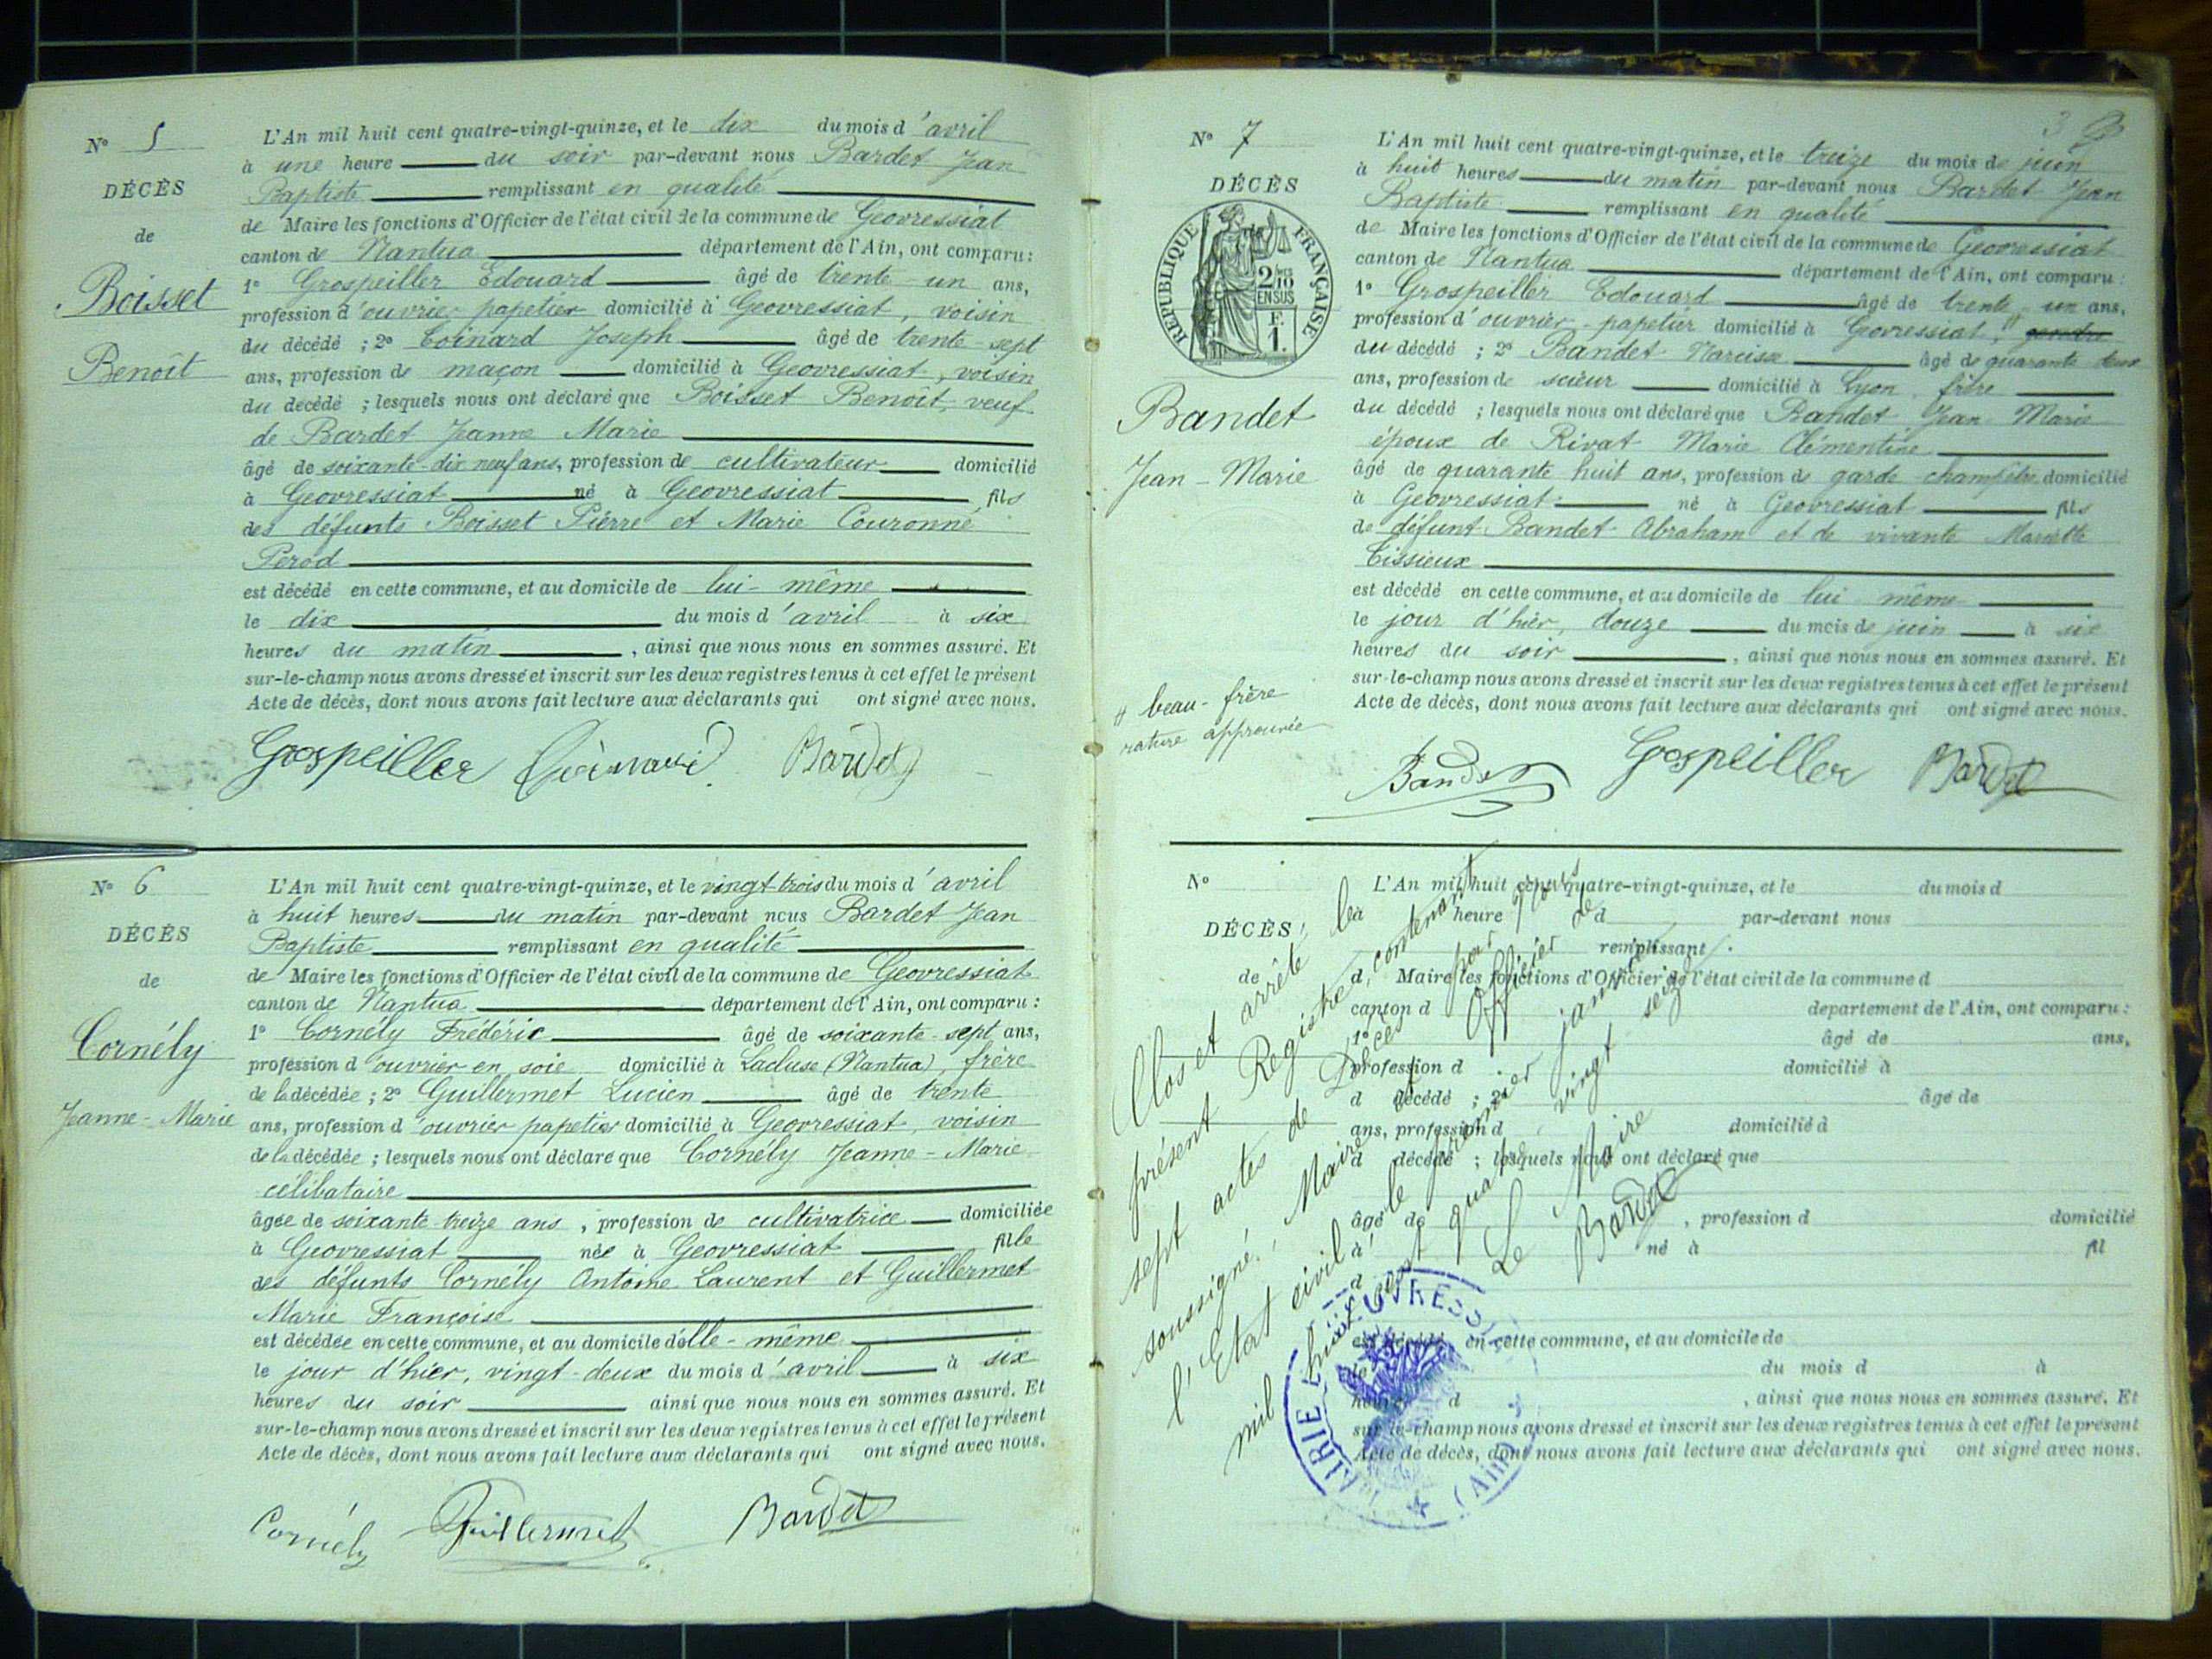 N° 5
DÉCÈS
de
Boisset
Benoît
L'An mil huit cent quatre-vingt-quinze, et le dix du mois d'avril
à une heure du soir par-devant nous Bardet Jean
Baptiste remplissant en qualité
de Maire les fonctions d'Officier de l'état civil de la commune de Geovressiat
canton de Nantua département de l'Ain, ont comparu :
1° Grospeiller Edouard âgé de trente-un ans,
profession d'ouvrier papetier domicilié à Geovressiat, voisin
du décédé ; 2° Coinard Joseph âgé de trente-sept
ans, profession de maçon domicilié à Geovressiat, voisin
du décédé ; lesquels nous ont déclaré que Boisset Benoît, veuf
de Bardet Jeanne Marie
âgé de soixante-dix neuf ans, profession de cultivateur domicilié
à Geovressiat né à Geovressiat fils
des défunts Boisset Pierre et Marie Couronne
Perod
est décédé en cette commune, et au domicile de lui-même
le dix du mois d'avril à six
heures du matin, ainsi que nous nous en sommes assuré. Et
sur-le-champ nous avons dressé et inscrit sur les deux registres tenus à cet effet le présent
Acte de décès, dont nous avons fait lecture aux déclarants qui ont signé avec nous.
Grospeiller Coinard Bardet
N° 6
DÉCÈS
de
Cornély
Jeanne-Marie
L'An mil huit cent quatre-vingt-quinze, et le vingt-trois du mois d'avril
à huit heures du matin par-devant nous Bardet Jean
Baptiste remplissant en qualité
de Maire les fonctions d'Officier de l'état civil de la commune de Geovressiat
canton de Nantua département de l'Ain, ont comparu :
1° Cornély Frédéric âgé de soixante-sept ans,
profession d'ouvrier en soie domicilié à Lacluse (Nantua), frère
de la décédée ; 2° Guillermet Lucien âgé de trente
ans, profession d'ouvrier papetier domicilié à Geovressiat, voisin
de la décédée ; lesquels nous ont déclaré que Cornély Jeanne-Marie
célibataire
âgée de soixante-treize ans, profession de cultivatrice domiciliée
à Geovressiat née à Geovressiat fille
des défunts Cornély Antoine Laurent et Guillermet
Marie Françoise
est décédée en cette commune, et au domicile d'elle-même
le jour d'hier, vingt-deux du mois d'avril à six
heures du soir ainsi que nous nous en sommes assuré. Et
sur-le-champ nous avons dressé et inscrit sur les deux registres tenus à cet effet le présent
Acte de décès, dont nous avons fait lecture aux déclarants qui ont signé avec nous.
Cornély Guillermet Bardet
3
N° 7
DÉCÈS
RÉPUBLIQUE FRANÇAISE
2/10 EN SUS
F. 1.
Bandet
Jean-Marie
L'An mil huit cent quatre-vingt-quinze, et le treize du mois de juin
à huit heures du matin par-devant nous Bardet Jean
Baptiste remplissant en qualité
de Maire les fonctions d'Officier de l'état civil de la commune de Geovressiat
canton de Nantua département de l'Ain, ont comparu :
1° Grospeiller Edouard âgé de trente un ans,
profession d'ouvrier-papetier domicilié à Geovressiat, # gendre
du décédé ; 2° Bandet Narcisse âgé de quarante deux
ans, profession de scieur domicilié à Lyon, frère
du décédé ; lesquels nous ont déclaré que Bandet Jean Marie
époux de Rivat Marie Clémentine
âgé de quarante huit ans, profession de garde-champêtre domicilié
à Geovressiat né à Geovressiat fils
de défunt Bandet Abraham et de vivante Mariette
Tissieux
est décédé en cette commune, et au domicile de lui même
le jour d'hier, douze du mois de juin à six
heures du soir, ainsi que nous nous en sommes assuré. Et
sur-le-champ nous avons dressé et inscrit sur les deux registres tenus à cet effet le présent
Acte de décès, dont nous avons fait lecture aux déclarants qui ont signé avec nous.
# beau-frère
rature approuvée
Bandet Grospeiller Bardet
N°
DÉCÈS
de
L'An mil huit cent quatre-vingt-quinze, et le du mois d
à heure d par-devant nous
remplissant
d Maire les fonctions d'Officier de l'état civil de la commune d
canton d département de l'Ain, ont comparu :
1° âgé de ans,
profession d domicilié à
d décédé ; 2° âgé de
ans, profession d domicilié à
d décédé ; lesquels nous ont déclaré que
âgé de, profession d domicilié
à né à fil
d
est décédé en cette commune, et au domicile de
le du mois d à
heure d, ainsi que nous nous en sommes assuré. Et
sur-le-champ nous avons dressé et inscrit sur les deux registres tenus à cet effet le présent
Acte de décès, dont nous avons fait lecture aux déclarants qui ont signé avec nous.
Clos et arrêté le
présent Registre, contenant
sept actes de Décès par nous
soussigné, Maire, Officier de
l'Etat civil le premier janvier
mil huit cent quatre vingt seize.
Le Maire
Bardet
MAIRIE GEOVRESSIAT
(Ain)